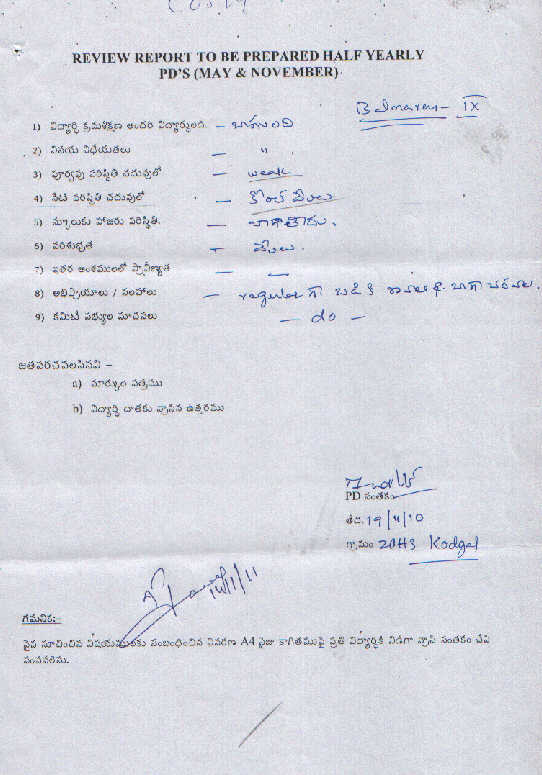 REVIEW REPORT TO BE PREPARED HALF YEARLY
PD'S (MAY & NOVEMBER)
Balmaram - IX
1) విద్యార్థి క్రమశిక్షణ అందరి విద్యార్థులది. - బాగుంది
2) వినయ విధేయతలు — "
3) పూర్వపు పరిస్థితి చదువులో — weak
4) నేటి పరిస్థితి చదువులో — కొంచెం మేలు
5) స్కూలుకు హాజరు పరిస్థితి. —
6) పరిశుభ్రత — మేలు.
7) ఇతర అంశములలో ప్రావీణ్యత — —
8) అభిప్రాయాలు / సలహాలు — regular గా బడికి
9) కమిటీ సభ్యుల సూచనలు — do —
జతపరచవలసినవి –
a) మార్కుల పత్రము
b) విద్యార్థి దాతకు వ్రాసిన ఉత్తరము
PD సంతకం
తేది. 19/11/10
గ్రామం ZPHS Kodgal
14/1/11
గమనిక:-
పైన సూచించిన విషయములకు సంబంధించిన వివరణ A4 సైజు కాగితముపై ప్రతి విద్యార్థికి విడిగా వ్రాసి సంతకం చేసి
పంపవలెను.